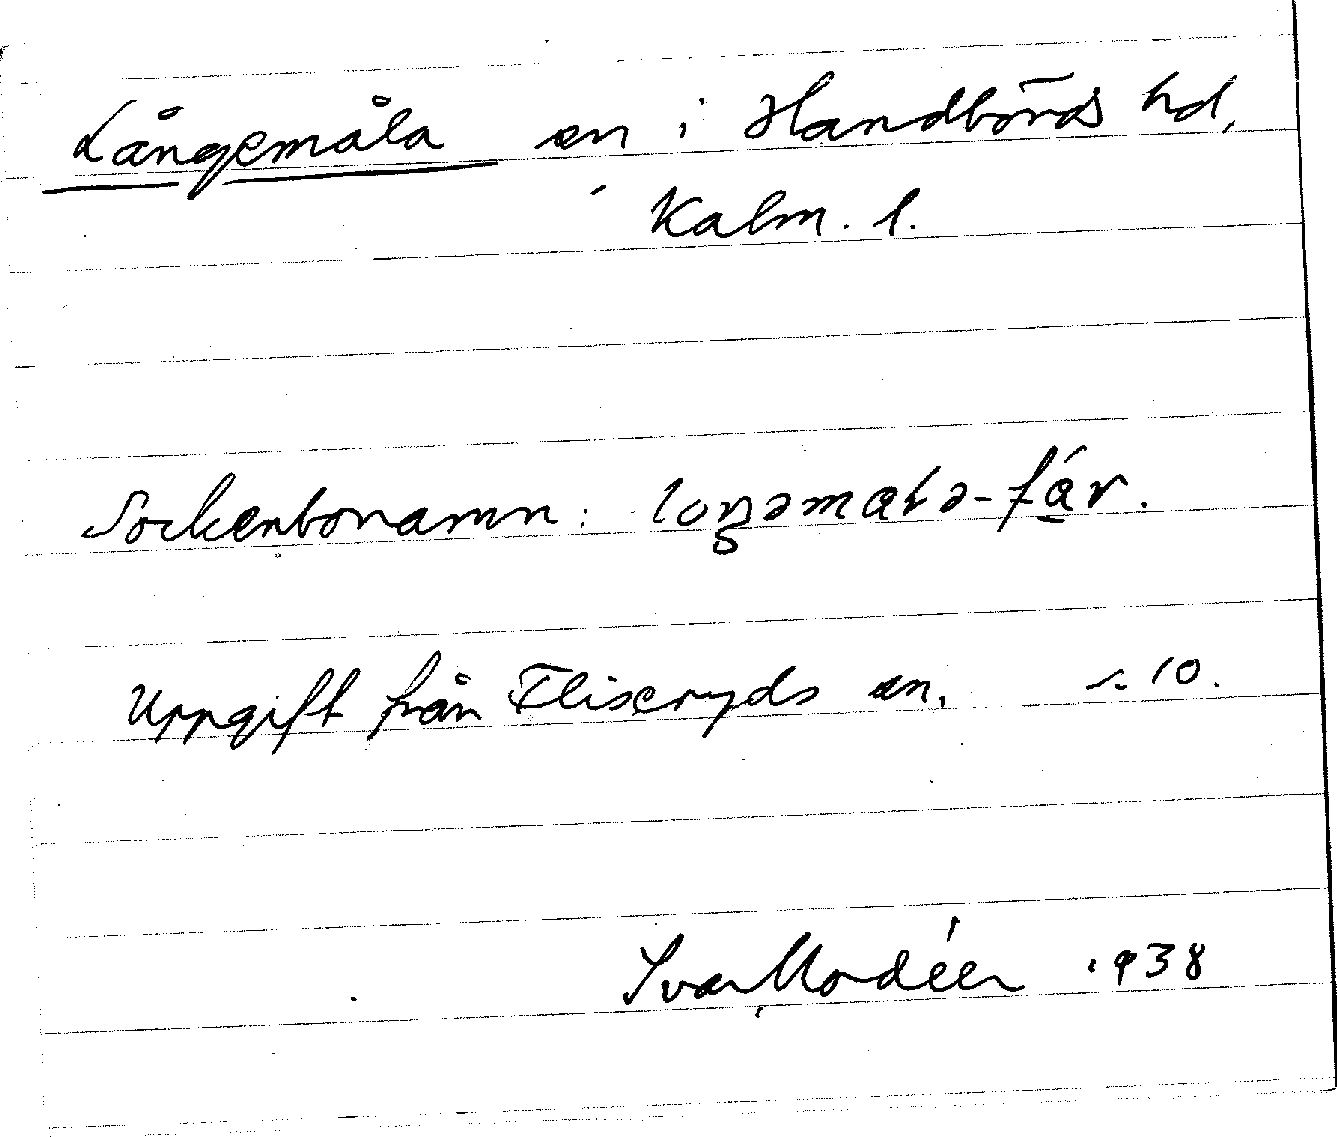 Långemåla sn i Handbörds hd,
Kalm. l.
Sockenbonamn: loŋəmaɫə-fár.
Uppgift från Fliseryds sn. s. 10.
Ivar Modéer 1938